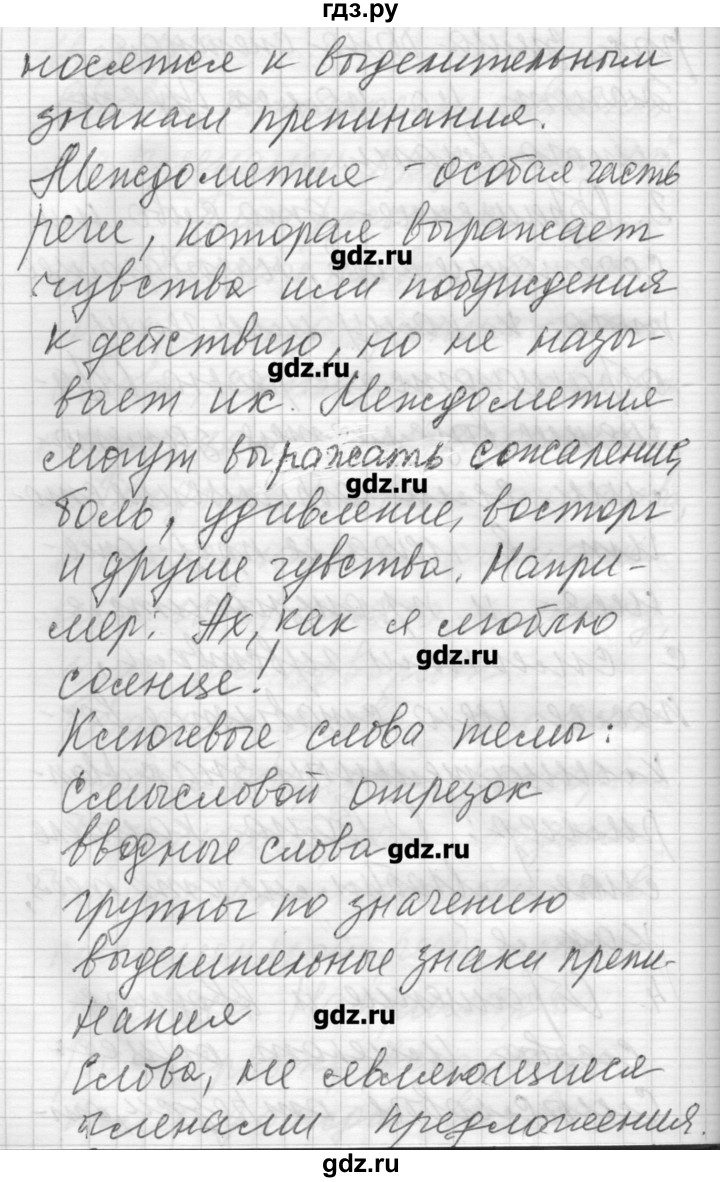 гдз.ру
носятся к выделительным
знакам препинания.
Междометия - особая часть
речи, которая выражает
gdz.ru
чувства или побуждения
к действию, но не назы-
gdz.ru
вает их. Междометия
могут выражать сожаление,
gdz.ru
боль, удивление, восторг
и другие чувства. Напри-
мер: Ах, как я люблю
gdz.ru
солнце!
Ключевые слова темы:
Смысловой отрезок
вводные слова
gdz.ru
группы по значению
выделительные знаки препи-
нания
gdz.ru
Слова, не являющиеся
членами предложения.
gdz.ru